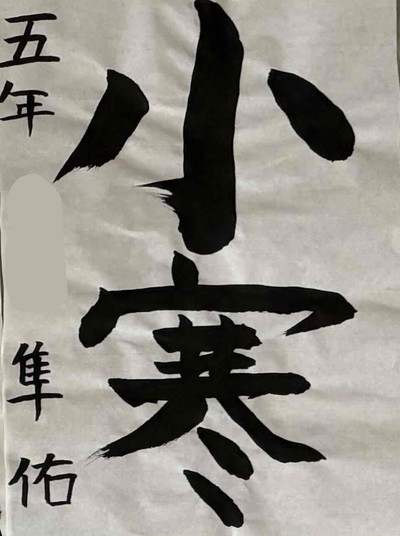 小寒
五年
隼佑